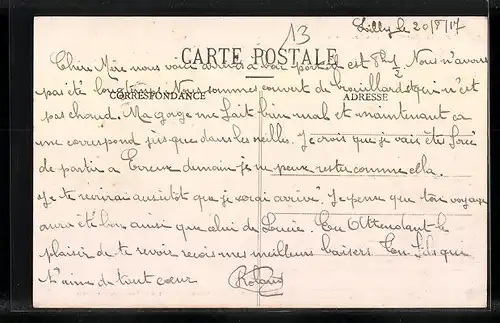 13
Lilly le 20/8/17
CARTE POSTALE
Chère Mère nous voici arrivés à bon port il est 8h 1/2 Nous n'avons
pas été longtemps. Nous sommes couvert de brouillard et qui n'est
CORRESPONDANCE
ADRESSE
pas chaud. Ma gorge me fait bien mal et maintenant ça
me correspond jusque dans les oreilles. Je crois que je vais être forcé
de partir à Evreux demain je ne peux rester comme cela.
Je te récrirai aussitôt que je serai arrivé. Je pense que ton voyage
aura été bon ainsi que celui de Lucie. En Attendant le
plaisir de te revoir reçois mes meilleurs baisers Ton fils qui
t'aime de tout cœur Roland